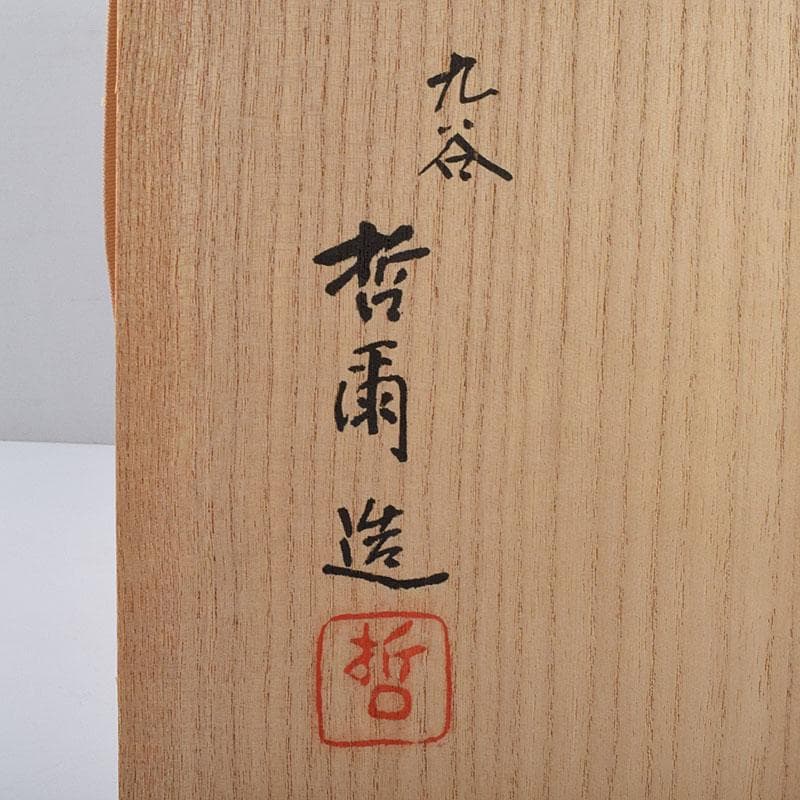 九谷
哲爾造
哲